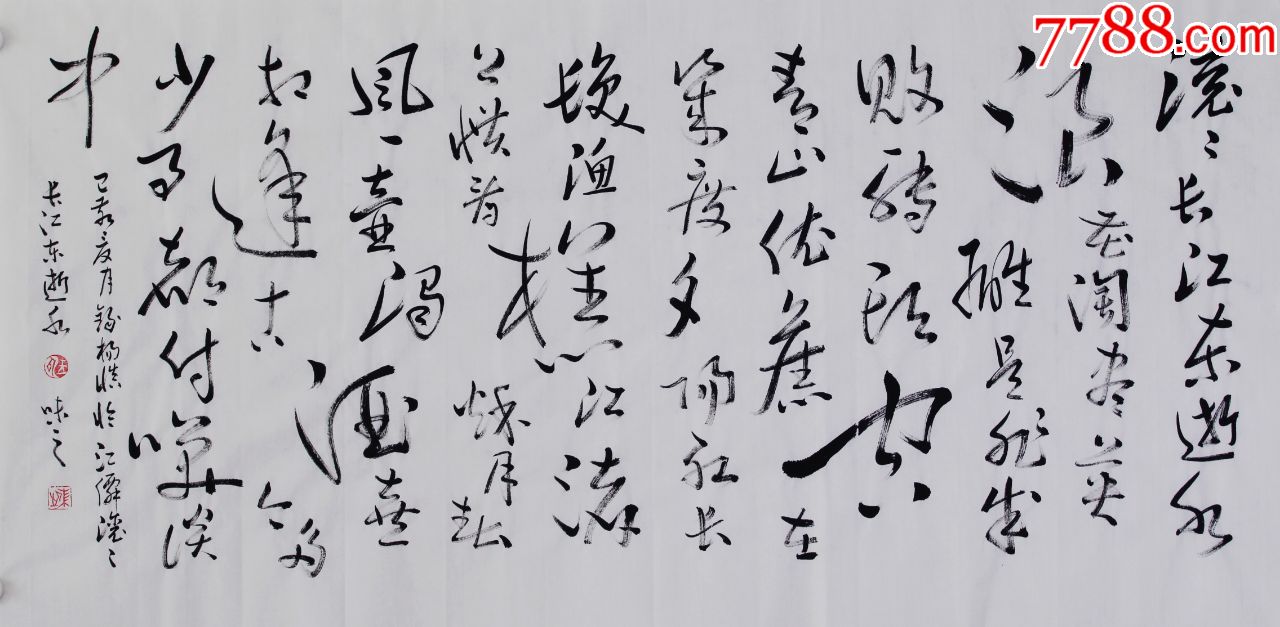 7788.com
滚〻长江东逝水
浪花淘尽英
雄是非成
败转头空
青山依旧在
几度夕阳红
髮渔樵江渚
上惯看秋月春
风一壶浊酒喜
相逢古今多
少事都付笑谈
中
己亥夏月録杨慎临江仙滚〻
长江东逝水 味之